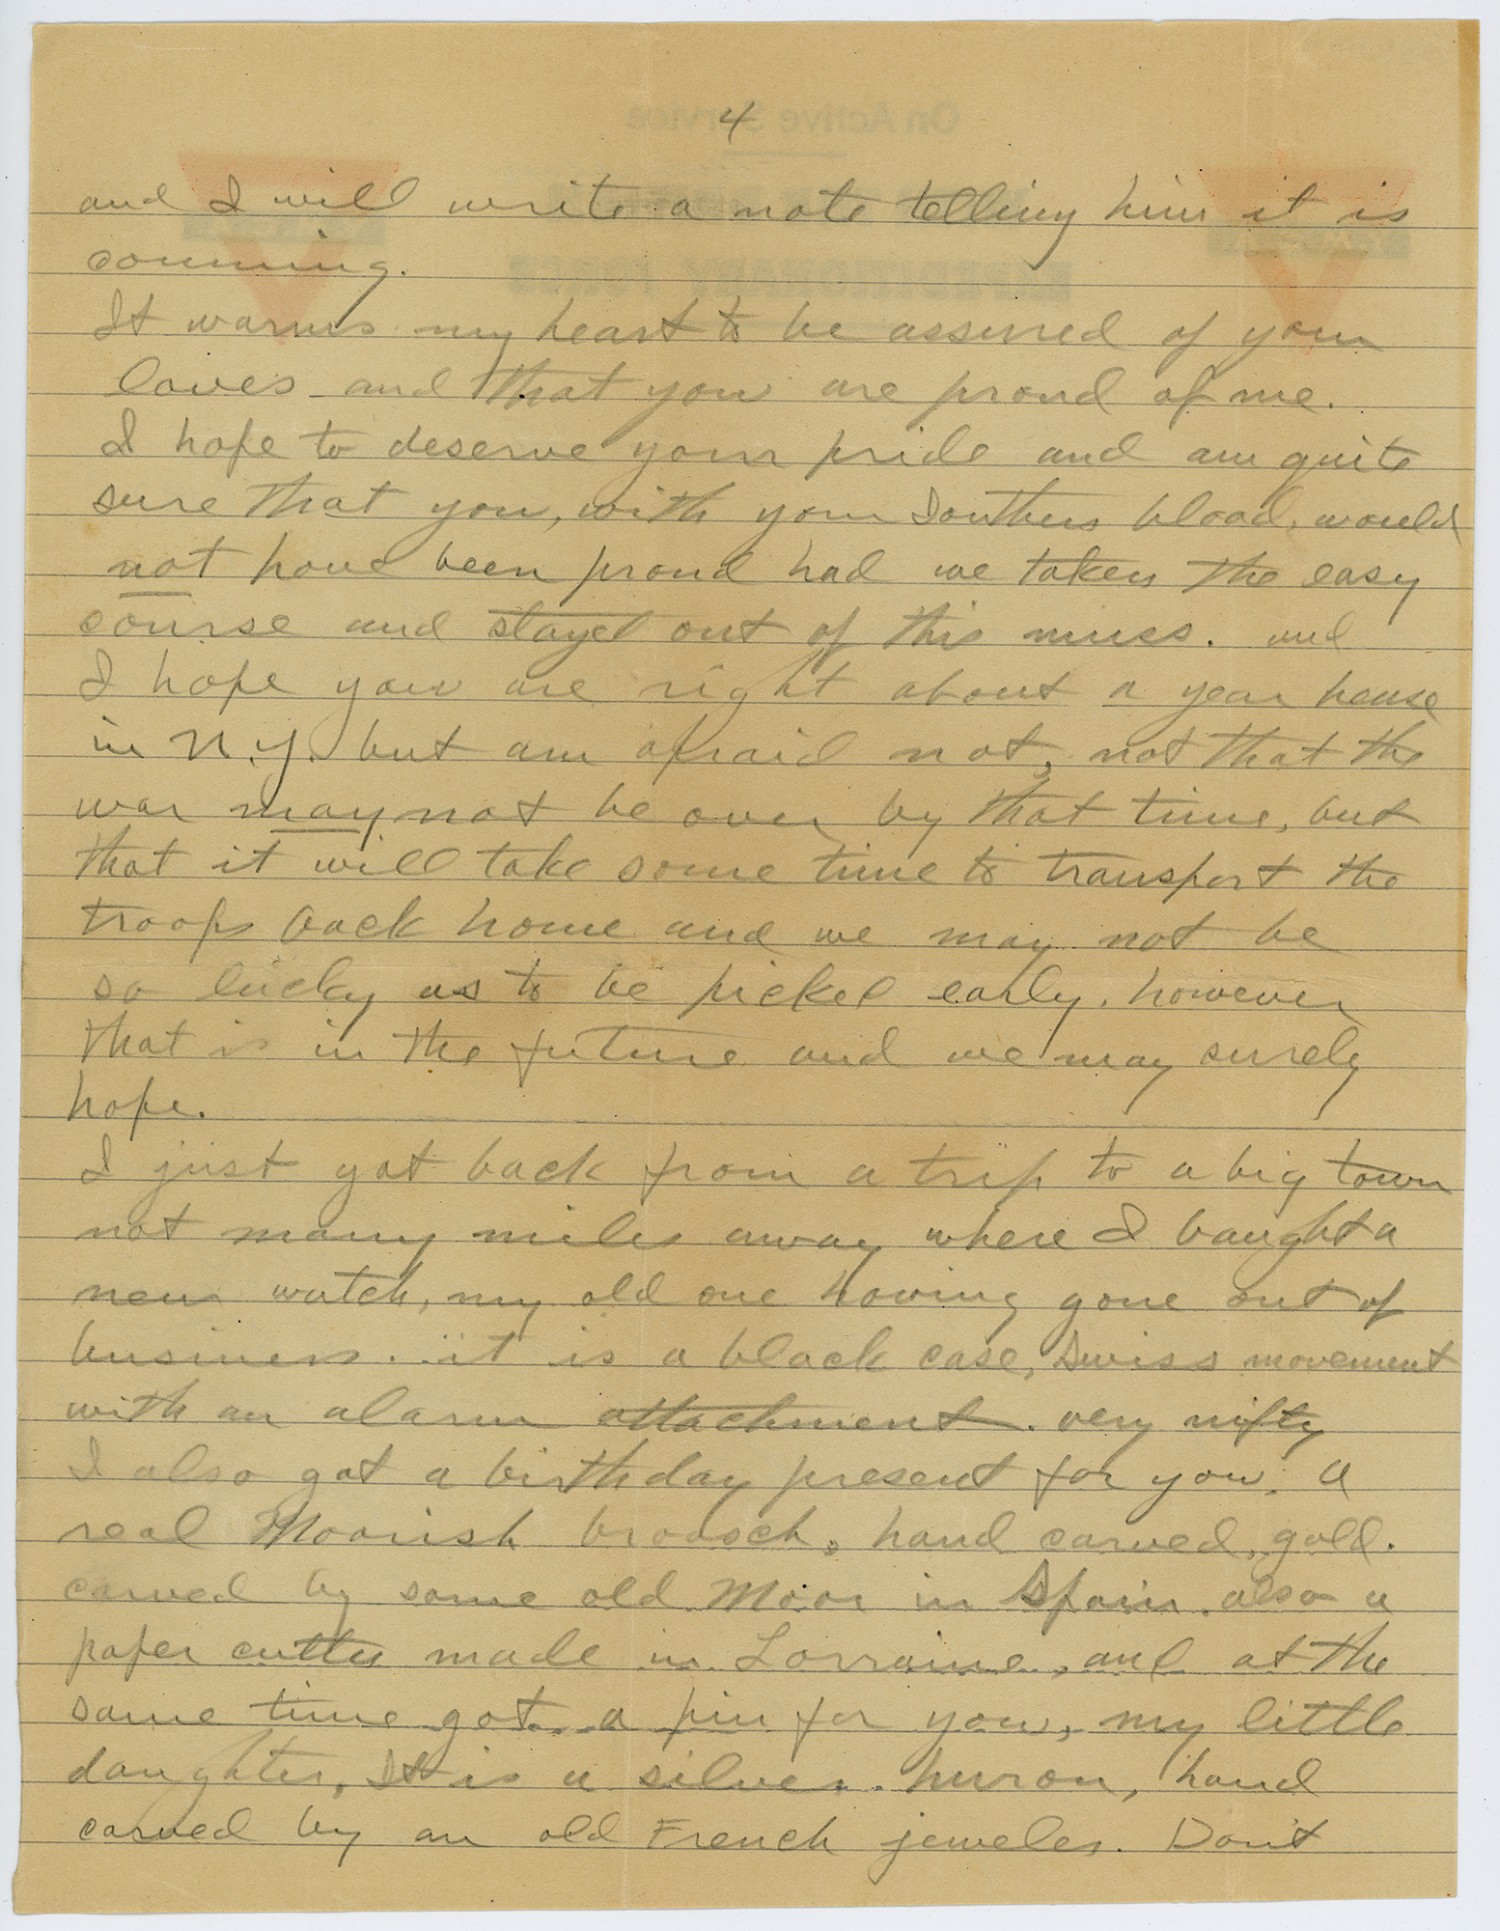 4
and I will write a note telling him it is
comming.
It warms my heart to be assured of your
loves and that you are proud of me.
I hope to deserve your pride and am quite
sure that you, with your Southern blood, would
not have been proud had we taken the easy
course and stayed out of this muss. and
I hope you are right about a year hense
in N.Y. but am afraid not, not that the
war may not be over by that time, but
that it will take some time to transport the
troops back home and we may not be
so lucky as to be picked early. however
that is in the future and we may surely
hope.
I just got back from a trip to a big town
not many miles away where I baught a
new watch, my old one having gone out of
business. it is a black case, Swiss movement
with an alarm attachment. very nifty
I also got a birthday present for you. a
real Moorish broosch, hand carved, gold.
carved by some old Moor in Spain. also a
paper cutter made in Lorraine, and at the
same time got a pin for you, my little
daughter, It is a silver. huron, hand
carved by an old French jeweler. Don't
On Active Service
EXPEDITIONARY FORCE